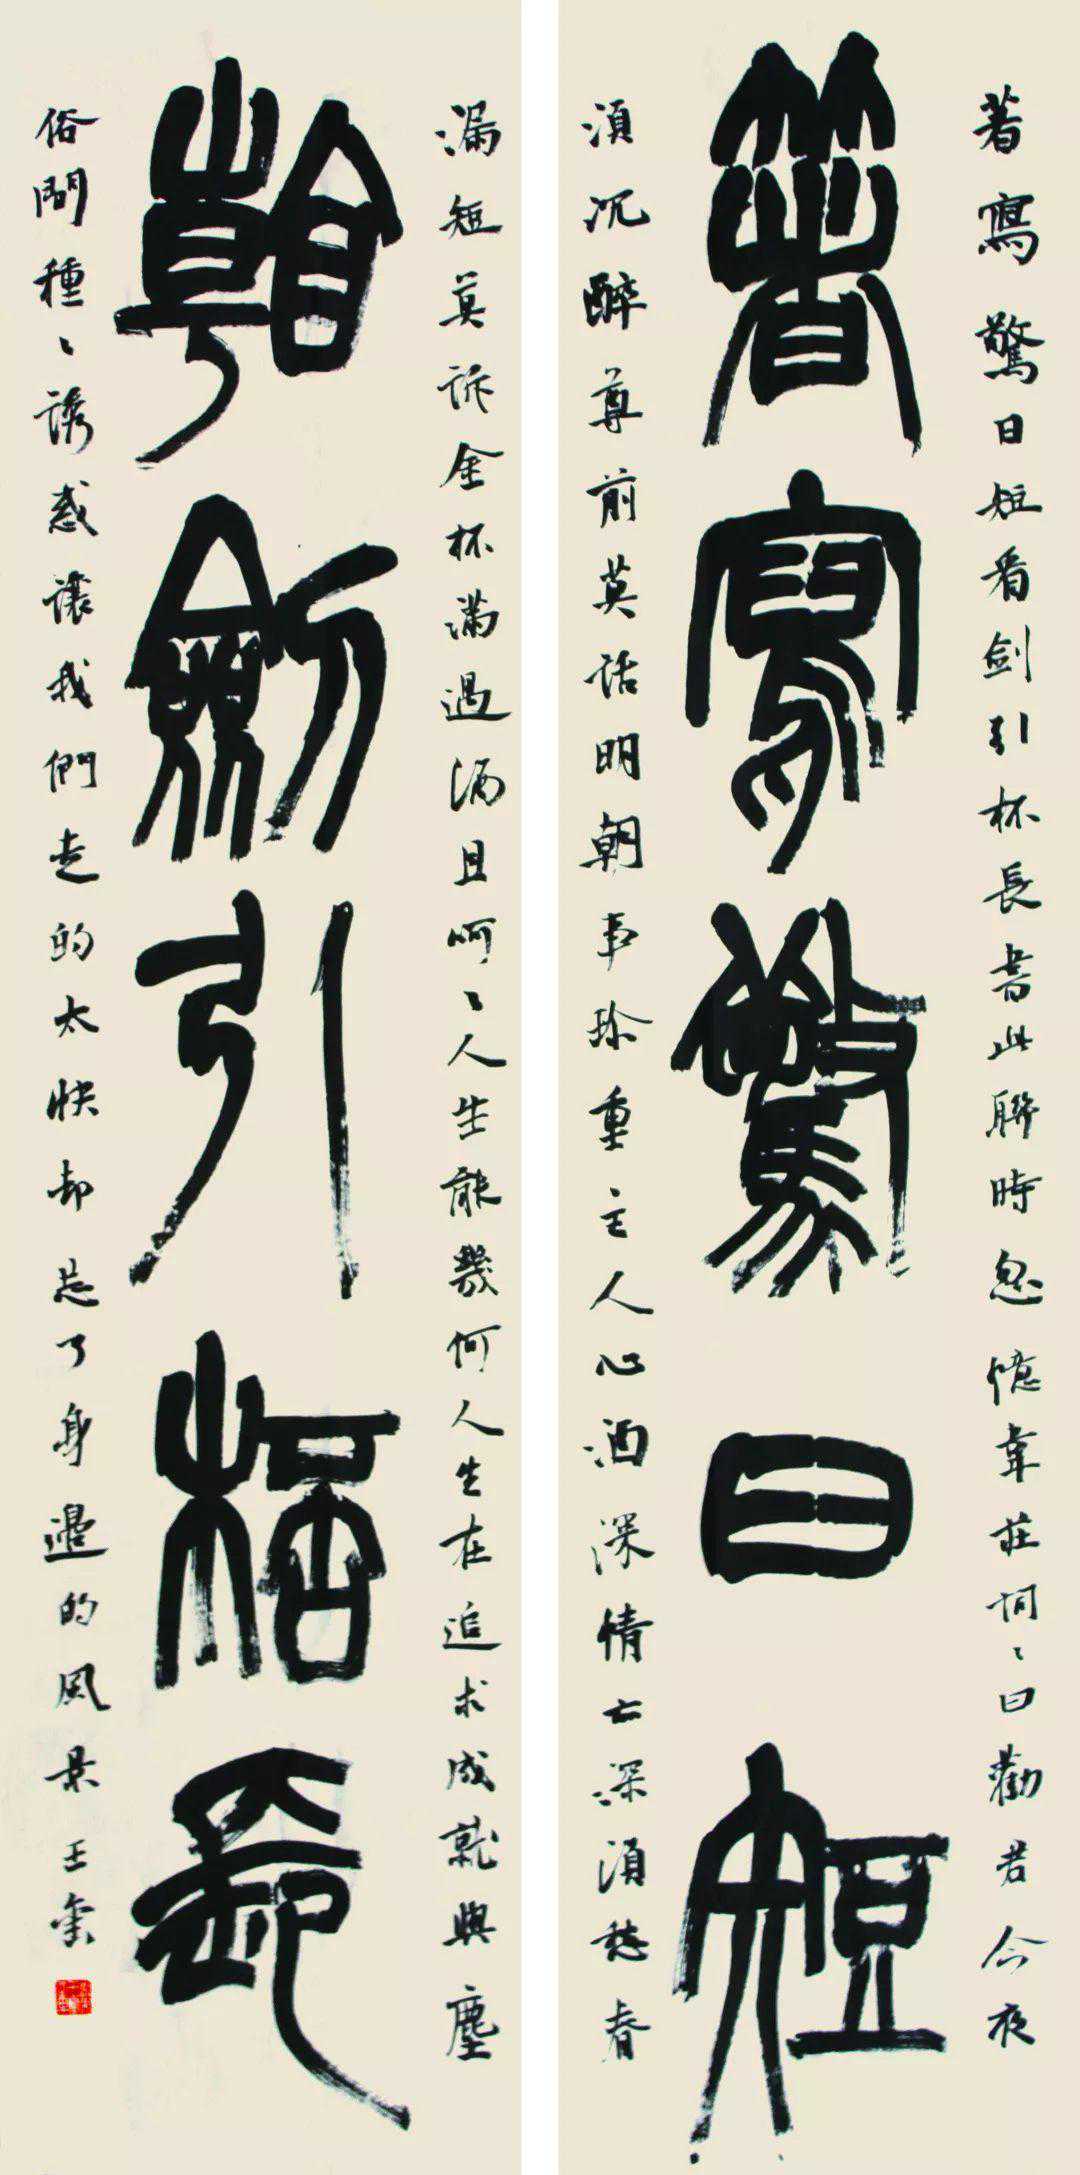 箸寫驚日短
著寫驚日短看剑引杯長書此聯時忽憶韋莊詞〻曰勸君今夜
湏沉醉尊前莫話明朝事珍重主人心酒深情亦深湏愁春
看劍引桮長
漏短莫訴金杯滿遇酒且呵〻人生能幾何人生在追求成就與塵
俗間種〻誘惑讓我們走的太快却忘了身邊的風景 王